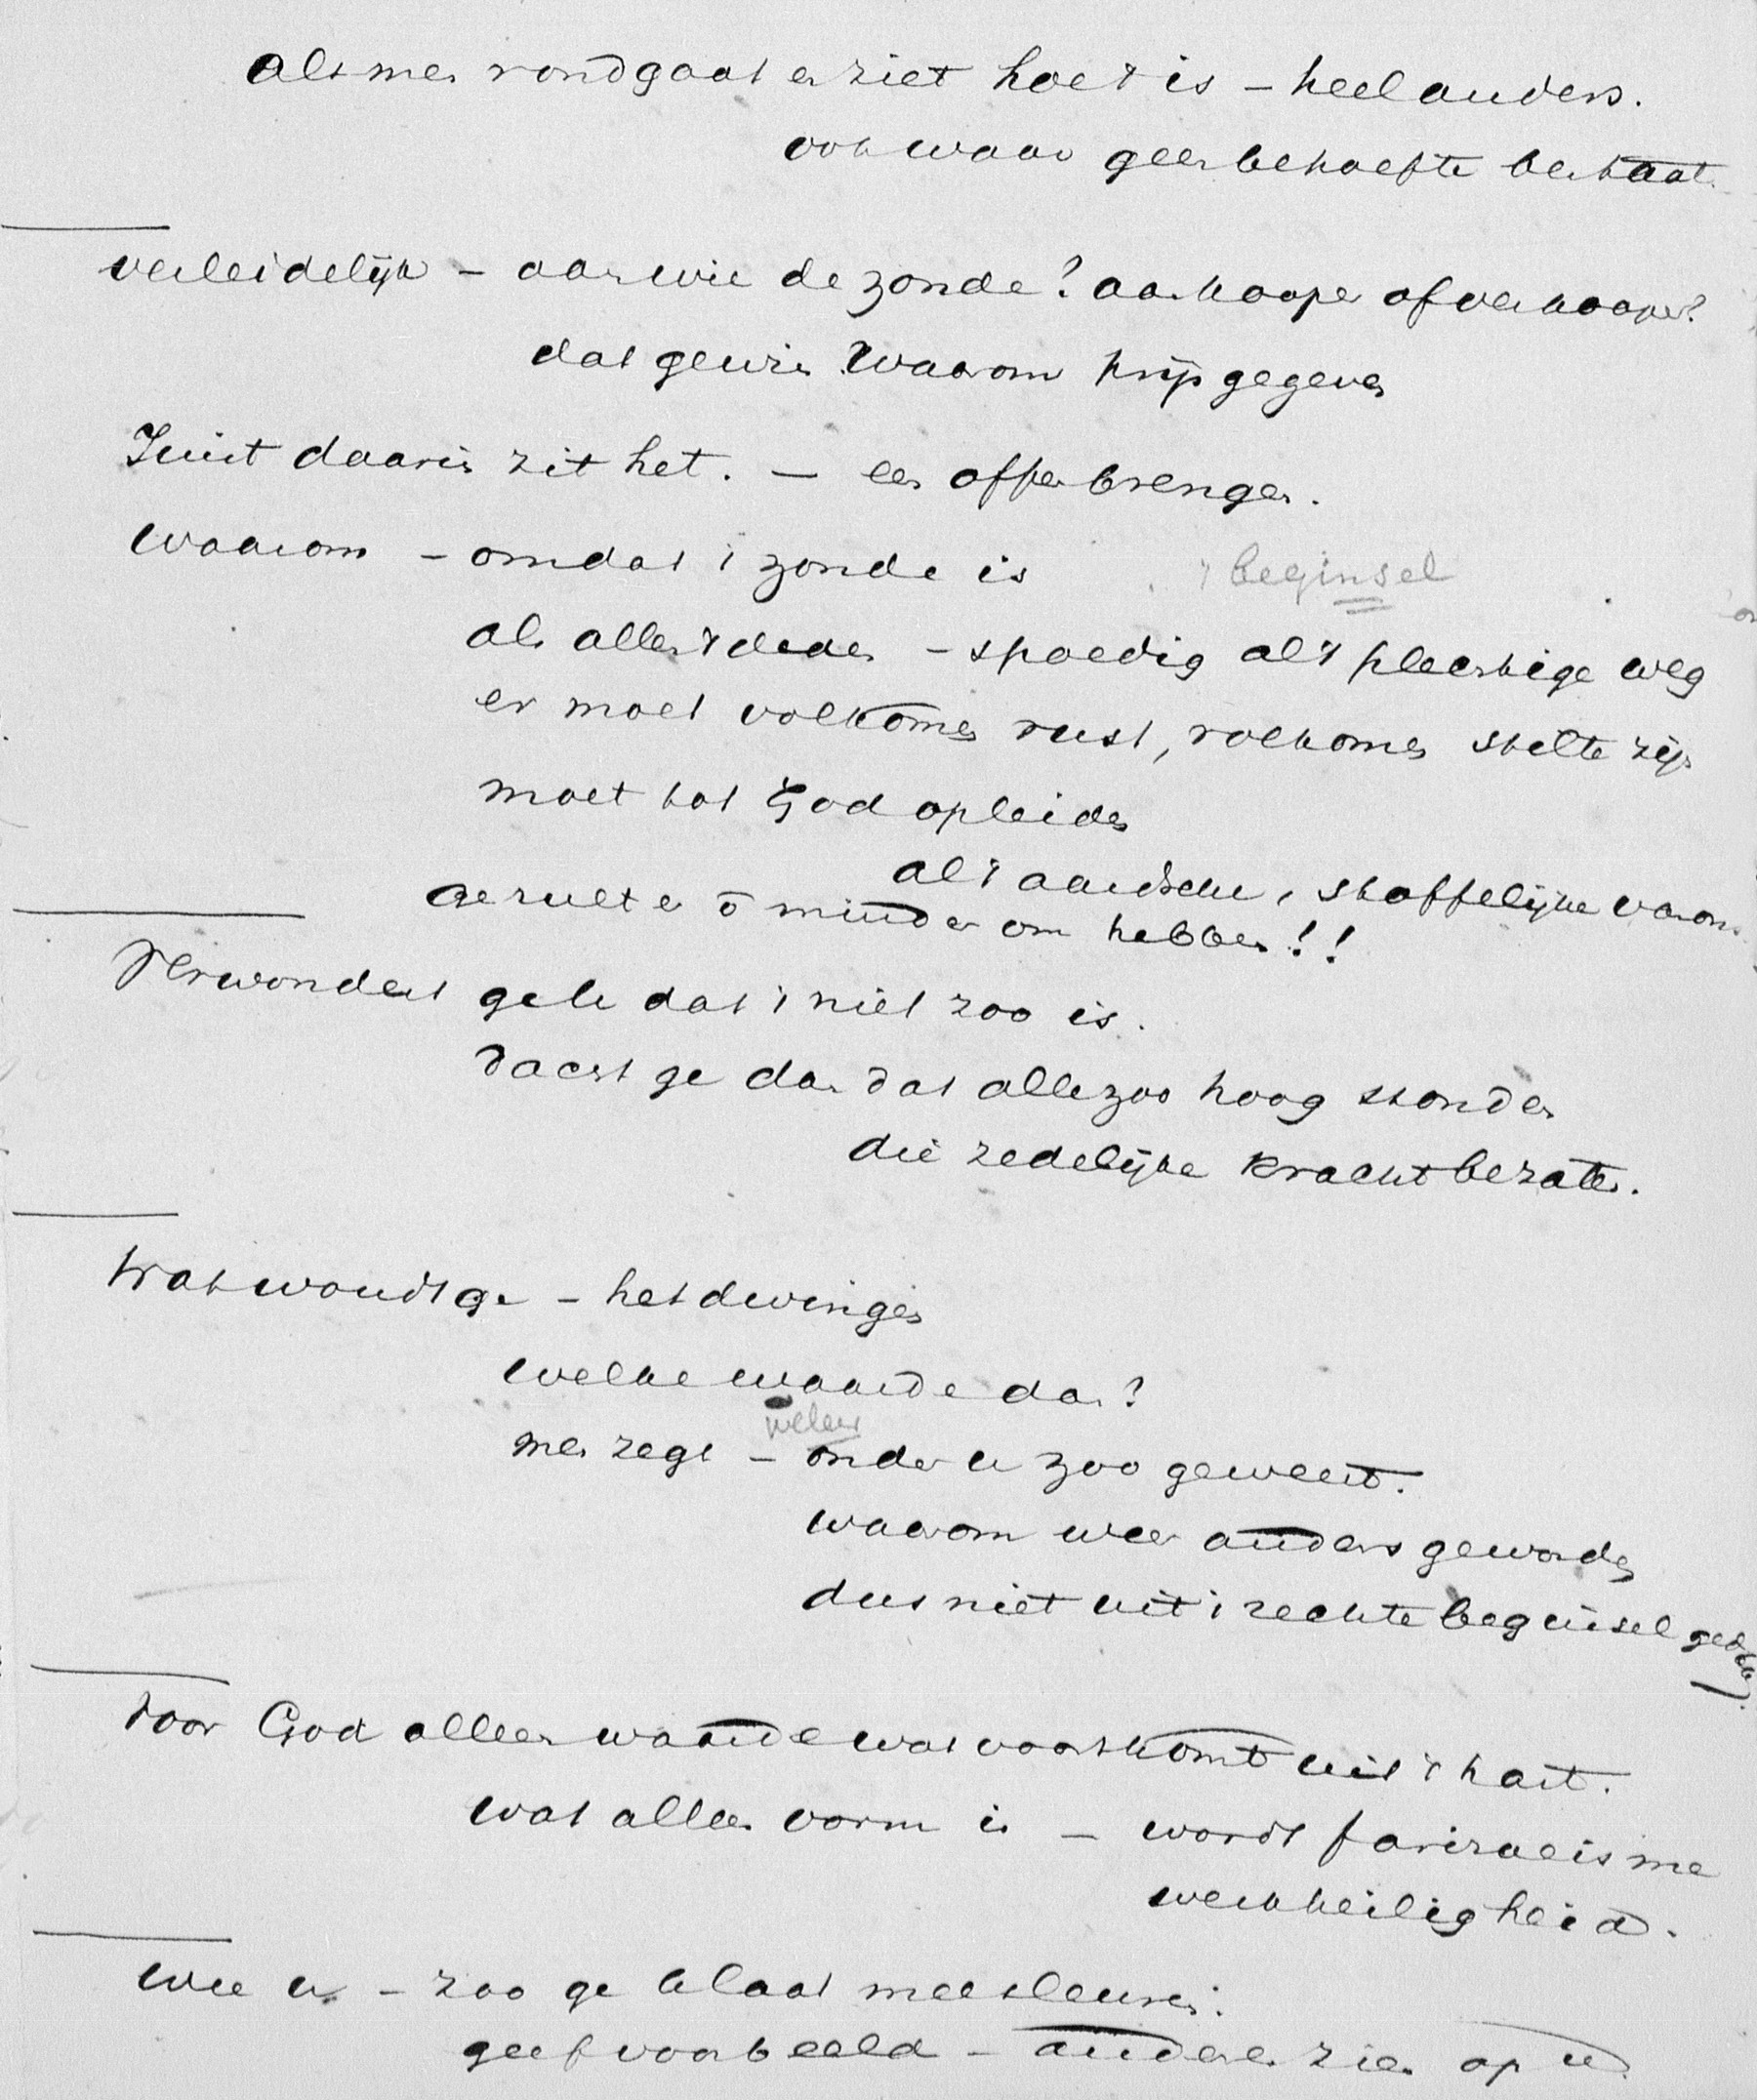 Als men rondgaat en ziet hoe 't is – heel anders.
ook waar geen behoefte bestaat.
verleidelijk – aan wie de zonde? aankoopen of verkoopen?
dat gewin. Waarom prijsgegeven
Juist daarin zit het. – een offer brengen.
waarom – omdat 't zonde is 't beginsel
als allen 't deden – spoedig al 't pleertige weg
er moet volkomen rust, volkomen stilte zijn
moet tot God opleiden
al 't aardsche, stoffelijke daarom
ge zult er o minder om hebben!!
Verwondert ge u dat 't niet zoo is.
dacht ge dan dat allen zoo hoog stonden
die zedelijke kracht bezaten.
Wat woudt ge – het dwingen
welke waarde dan?
weleer
men zegt – onder u zoo geweest.
waarom weer anders geworden
dus niet uit 't rechte beginsel
Voor God alleen waarde wat voortkomt uit 't hart.
wat alleen vorm is – wordt farizaeisme
werkheiligheid.
wee u – zoo ge u laat meesleuren.
geef voorbeeld – anderen zien op u